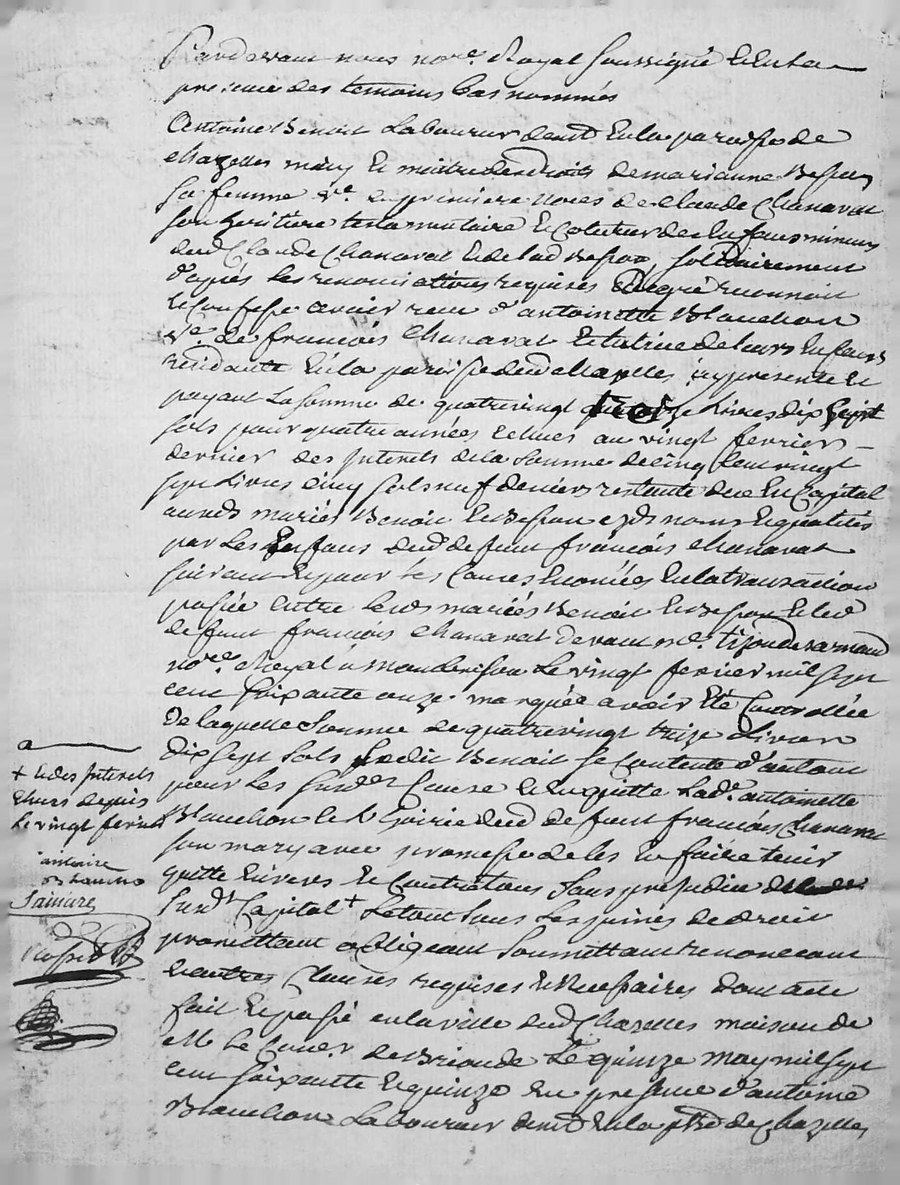 Pardevant nous no.re Royal soussigné et en la
presence des temoins bas nommés
Antoine Benoit Laboureur demt en la paroisse de
chazelles mary et maitre des droits de marianne Besson
sa femme v.e en premiere noces de claude Chanavat
son heritiere testamentaire et tutrice de leurs enfans mineurs
dud Claude Chanavat et de lad Besson, solidairement
d'apres les renonciations requises de gré reconnoit
et confesse avoir reçu d'antoinette Blanchon
v.e de françois Chanavat et tutrice de leurs enfans
residante en la paroisse dud chazelles icy presente et
payant la somme de quatrevingt treize livres dix sept
sols pour quatre années echues au vingt fevrier
dernier des interets de la somme de cinq cent vingt
sept livres cinq sols neuf deniers restante due en Capital
auxds mariés Benoit et Besson esds noms et qualités
par les enfans dud defunt françois chanavat
suivant et pour les causes enoncées en la transaction
passée entre lesds mariés Benoit et Besson et led
defunt françois chanavat devant me.
no.re Royal à Montbrison le vingt fevrier mil sept
cent soixante onze marquée avoir été Controllée
de laquelle somme de quatrevingt treize livres
dix sept sols ledit Benoit se contente d'autant
pour les susd.es Cause et en quitte lad.e antoinette
Blanchon et l'hoirie dud defunt françois Chanavat
son mary avec promesse de les en faire tenir
quitte envers et contre tous sans prejudice
susd.t Capital + Le tout sous les peines de droit
promettant obligeant soumettant renonceant
et autres Clauses requises et necessaires dont acte
fait et passé en la ville dud Chazelles maison de
de Brioude Le quinze may mil sept
cent soixante et quinze en presence d'antoine
Blanchon Laboureur demt en la psse de chazelles
+ et des interets
echus depuis
le vingt fevrier
antoine
Blanchon